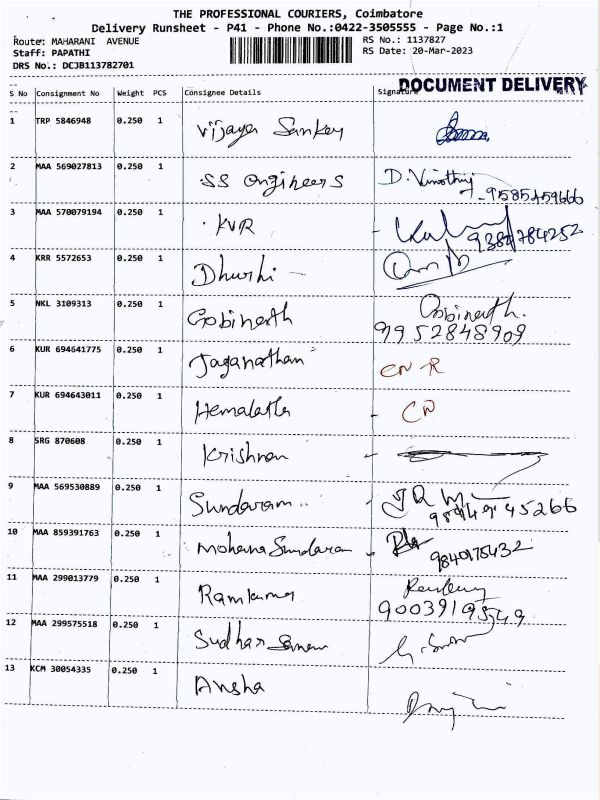 THE PROFESSIONAL COURIERS, Coimbatore
Delivery Runsheet - P41 - Phone No.:0422-3505555 - Page No.:1
Route: MAHARANI AVENUE RS No.: 1137827
Staff: PAPATHI RS Date: 20-Mar-2023
DRS No.: DCJB113782701
DOCUMENT DELIVERY
S No Consignment No Weight PCS Consignee Details Signature
1 TRP 5846948 0.250 1 Vijaya Sankey
2 MAA 569027813 0.250 1 SS Engineers D. Vinothiy
3 MAA 570079194 0.250 1 KVR - 9384784252
4 KRR 5572653 0.250 1 Dhurhi -
5 NKL 3109313 0.250 1 Gobinath Gobinath.
9952848909
6 KUR 694641775 0.250 1 Jaganatham CN R
7 KUR 694643011 0.250 1 Hemalatha - CN
8 SRG 870608 0.250 1 Krishnan -
9 MAA 569530889 0.250 1 Sundaram -
10 MAA 859391763 0.250 1 Mohana Sundaram - 9840175432
11 MAA 299013779 0.250 1 Ramkumar
9003919549
12 MAA 299575518 0.250 1
13 KCM 30054335 0.250 1 Ansha